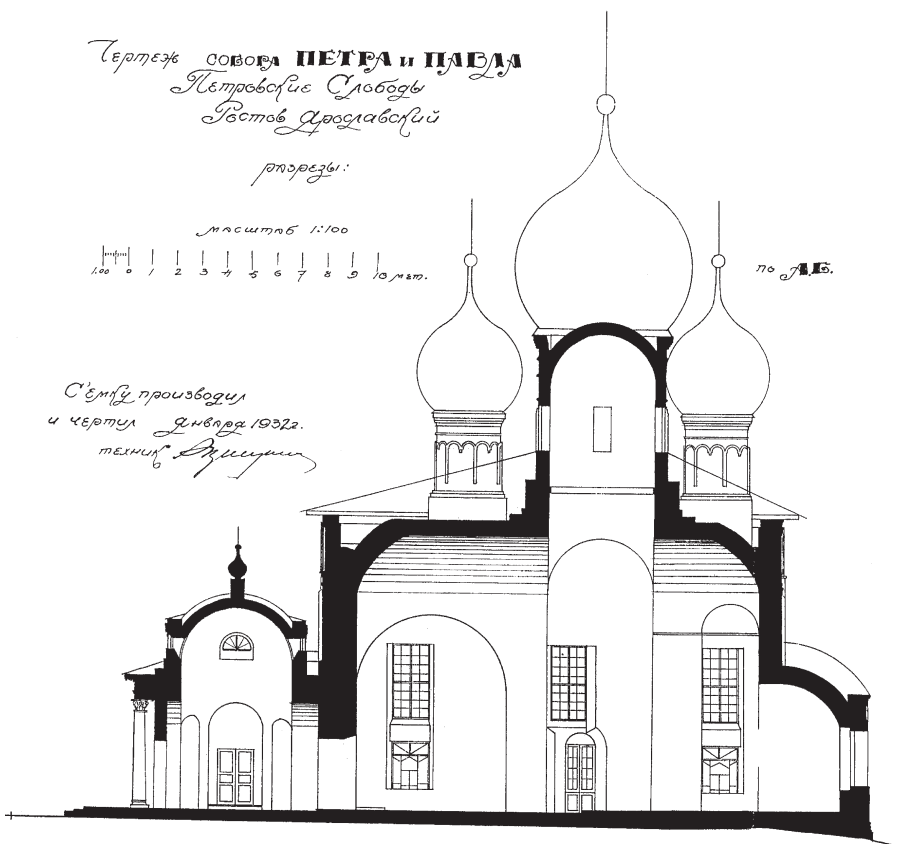 Чертеж собора ПЕТРА и ПАВЛА
Петровские Слободы
Ростов Ярославский
разрезы:
масштаб 1:100
1.00 0 1 2 3 4 5 6 7 8 9 10 мет.
по А.Б.
С'емку производил
и чертил января 1932г.
техник